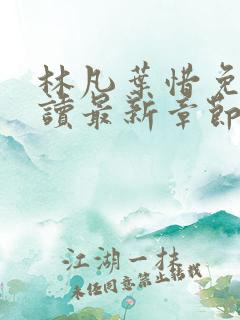 林凡葉惜免
讀最新章節
江湖一抹
未經同意禁止轉載